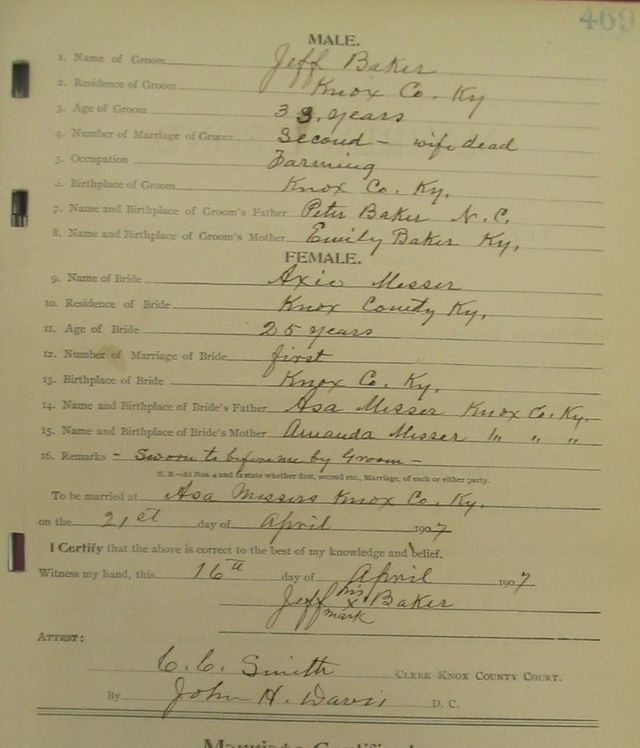 469
MALE.
1. Name of Groom Jeff Baker
2. Residence of Groom Knox Co. Ky
3. Age of Groom 33 years
4. Number of Marriage of Groom Second - wife dead
5. Occupation Farming
6. Birthplace of Groom Knox Co. Ky.
7. Name and Birthplace of Groom's Father Peter Baker N.C.
8. Name and Birthplace of Groom's Mother Emily Baker Ky.
FEMALE.
9. Name of Bride Axie Messer
10. Residence of Bride Knox County Ky.
11. Age of Bride 25 years
12. Number of Marriage of Bride first
13. Birthplace of Bride Knox Co. Ky.
14. Name and Birthplace of Bride's Father Asa Messer Knox Co. Ky.
15. Name and Birthplace of Bride's Mother Amanda Messer " " "
16. Remarks - Sworn to before me by Groom -
N. B.—At Nos. 4 and 12 state whether first, second etc., Marriage, of each or either party.
To be married at Asa Messers Knox Co. Ky.
on the 21st day of April 1907
I Certify that the above is correct to the best of my knowledge and belief.
Witness my hand, this 16th day of April 1907
his
Jeff x Baker
mark
ATTEST:
C. C. Smith CLERK KNOX COUNTY COURT.
By John H. Davis D. C.